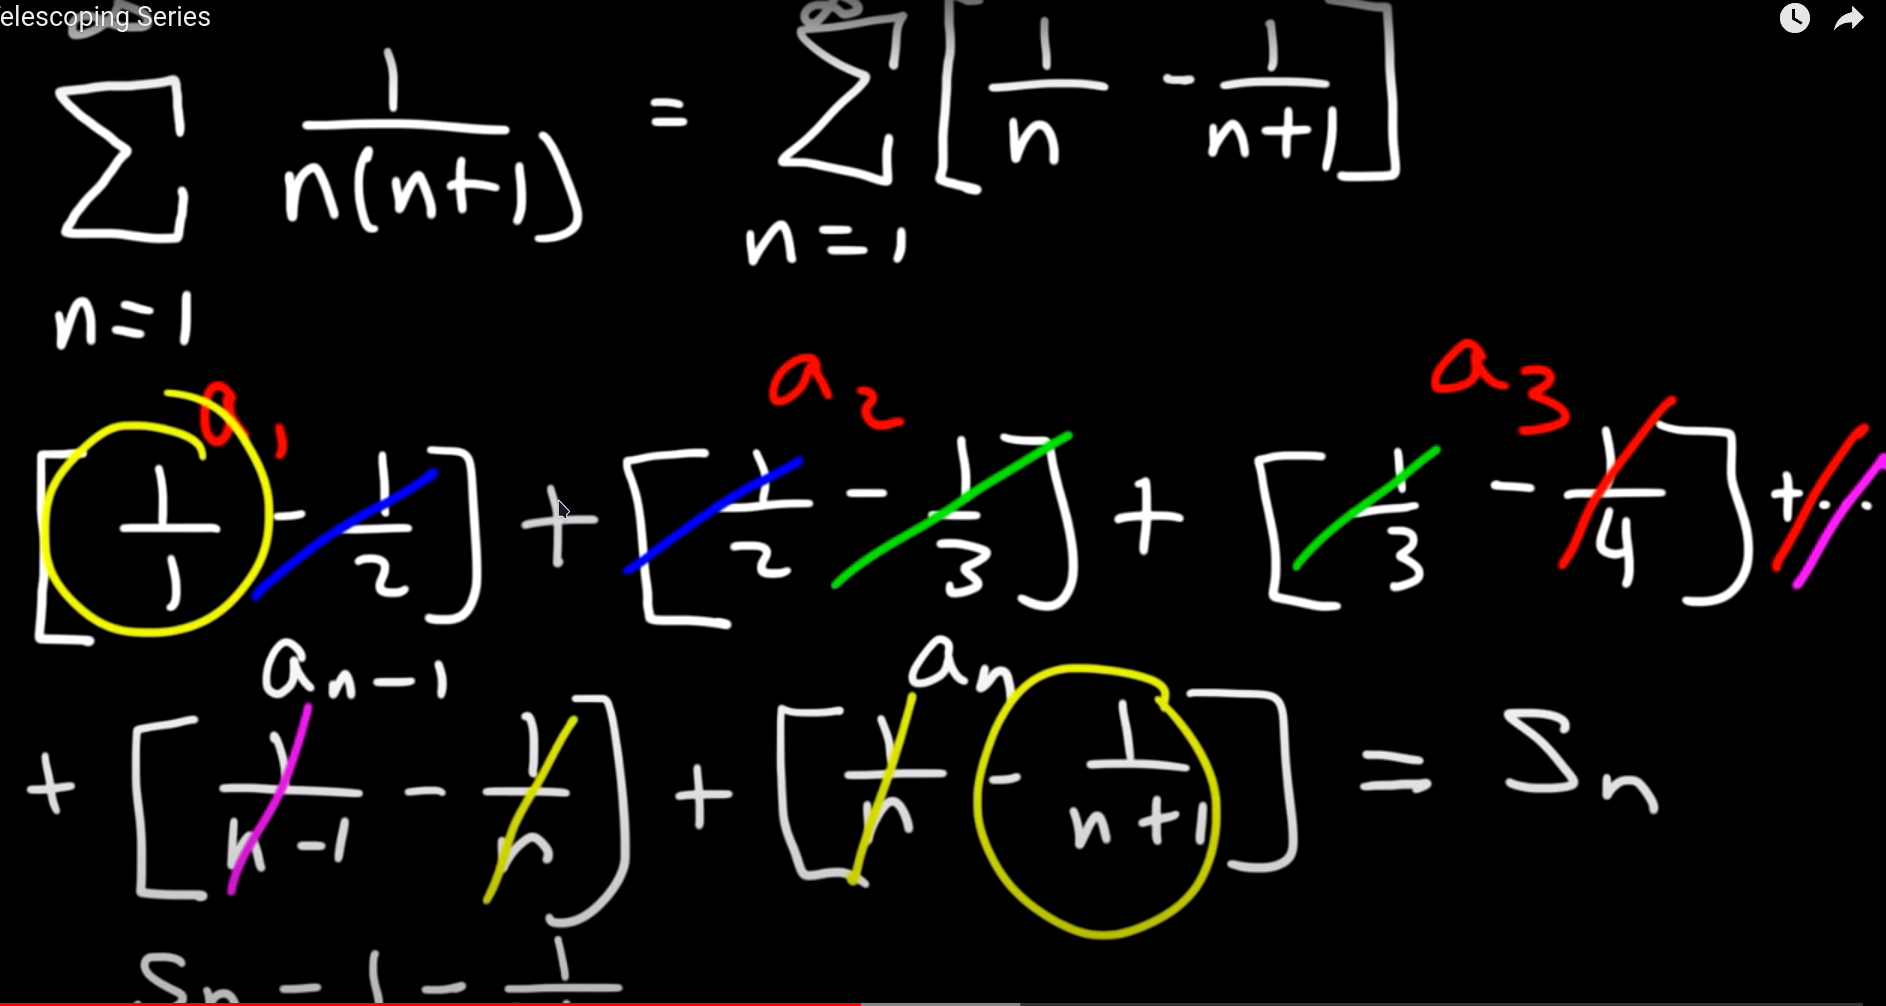 elescoping Series
∞ ∑ n=1 1/n(n+1) = ∞ ∑ n=1 [1/n - 1/n+1]
a₁ a₂ a₃
[1/1 - 1/2] + [1/2 - 1/3] + [1/3 - 1/4] + ...
aₙ₋₁ aₙ
+ [1/n-1 - 1/n] + [1/n - 1/n+1] = Sₙ
Sₙ = 1 - 1/